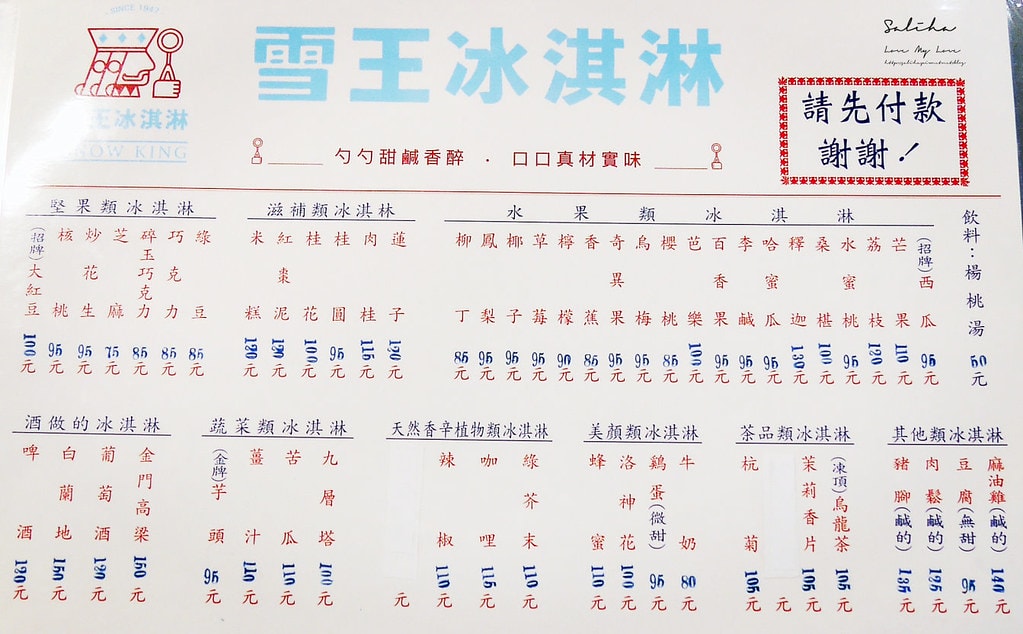 SINCE 1947
王冰淇淋
NOW KING
雪王冰淇淋
勺勺甜鹹香醉 · 口口真材實味
Saliha
Love My Love
請先付款
謝謝！
堅果類冰淇淋
(招牌)大紅豆 100元
核桃 95元
炒花生 95元
芝麻 75元
碎玉巧克力 85元
巧克力 85元
綠豆 85元
滋補類冰淇淋
米糕 120元
紅棗泥 120元
桂花 100元
桂圓 95元
肉桂 115元
蓮子 120元
水果類冰淇淋
柳丁 85元
鳳梨 95元
椰子 95元
草莓 95元
檸檬 90元
香蕉 85元
奇異果 95元
烏梅 95元
櫻桃 85元
芭樂 100元
百香果 95元
李鹹 95元
哈蜜瓜 95元
釋迦 130元
桑椹 100元
水蜜桃 95元
荔枝 120元
芒果 110元
(招牌)西瓜 95元
飲料：楊桃湯 50元
酒做的冰淇淋
啤酒 120元
白蘭地 150元
葡萄酒 120元
金門高梁 150元
蔬菜類冰淇淋
(金牌)芋頭 95元
薑汁 110元
苦瓜 110元
九層塔 100元
天然香辛植物類冰淇淋
元
辣椒 110元
咖哩 115元
綠芥末 110元
美顏類冰淇淋
蜂蜜 110元
洛神花 100元
鷄蛋(微甜) 95元
牛奶 80元
茶品類冰淇淋
杭菊 105元
元
茉莉香片 105元
(凍頂)烏龍茶 105元
其他類冰淇淋
豬腳(鹹的) 135元
肉鬆(鹹的) 125元
豆腐(無甜) 95元
麻油雞(鹹的) 140元